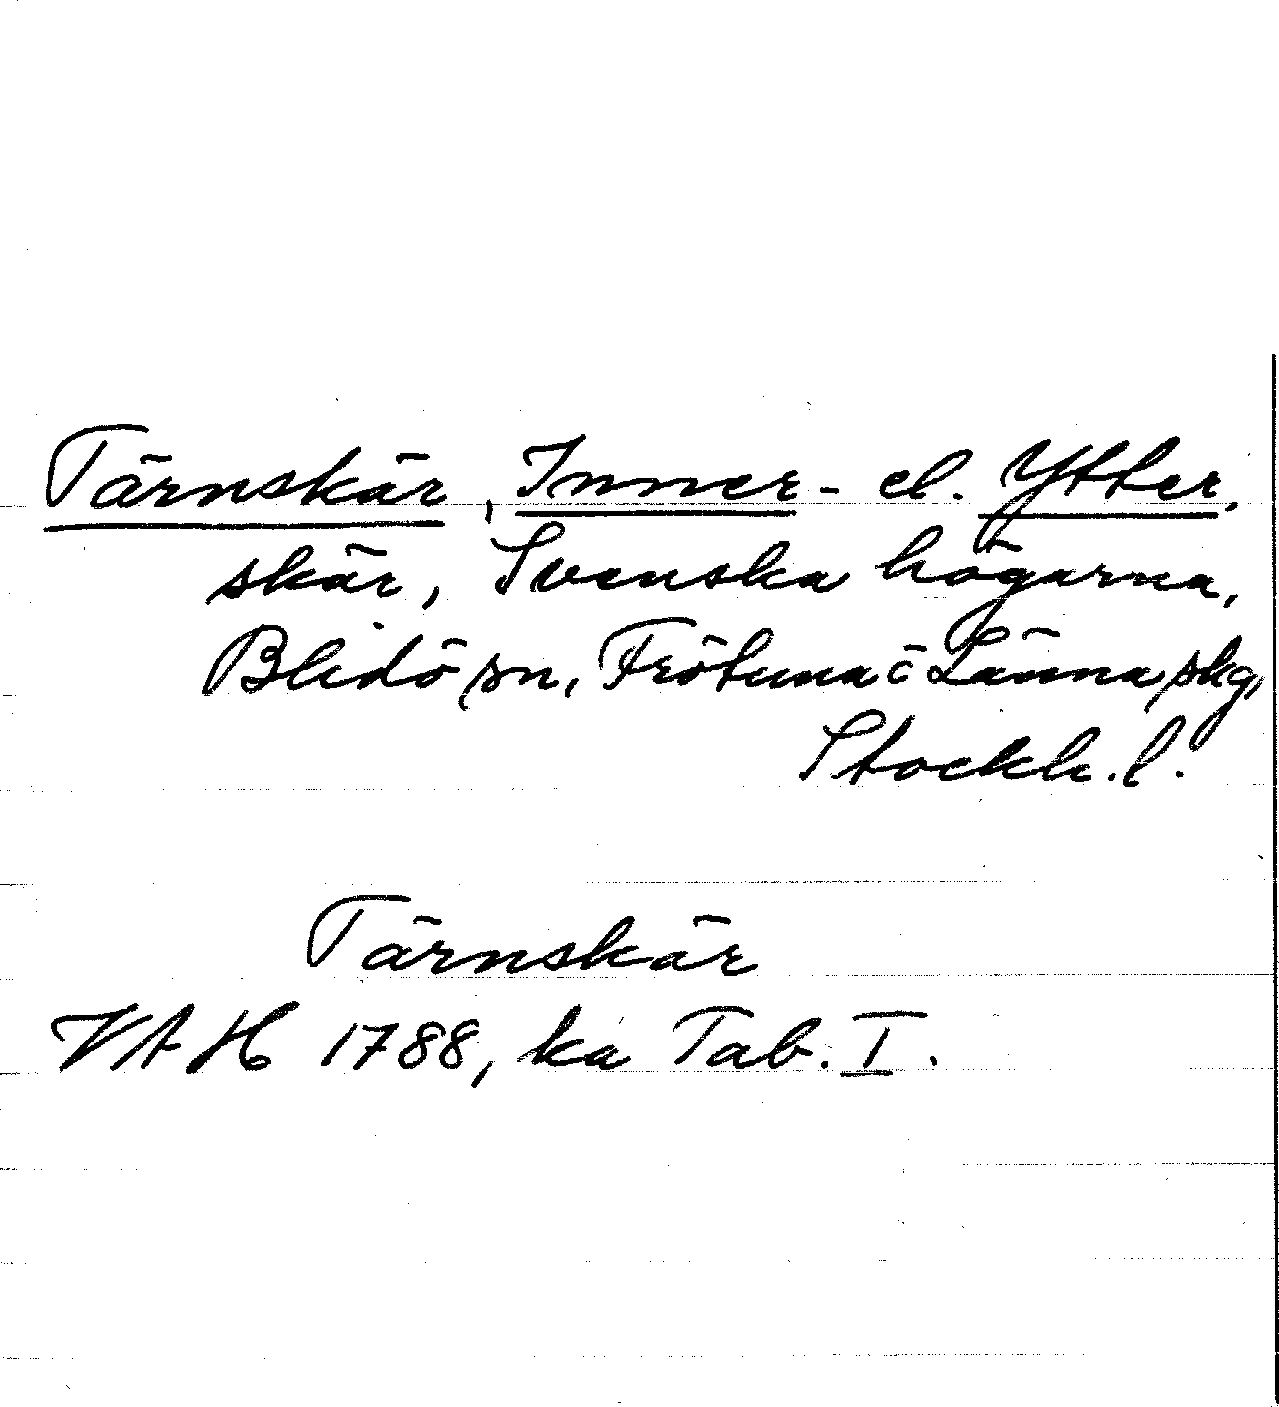 Tärnskär, Inner- el. Ytter.
skär, Svenska högarna,
Blidö sn, Frötuna o Länna skg,
Stockh. l.
Tärnskär
VAH 1788, ka Tab. I.